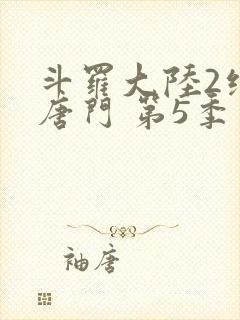 斗羅大陸2
唐門 第5季
袖唐